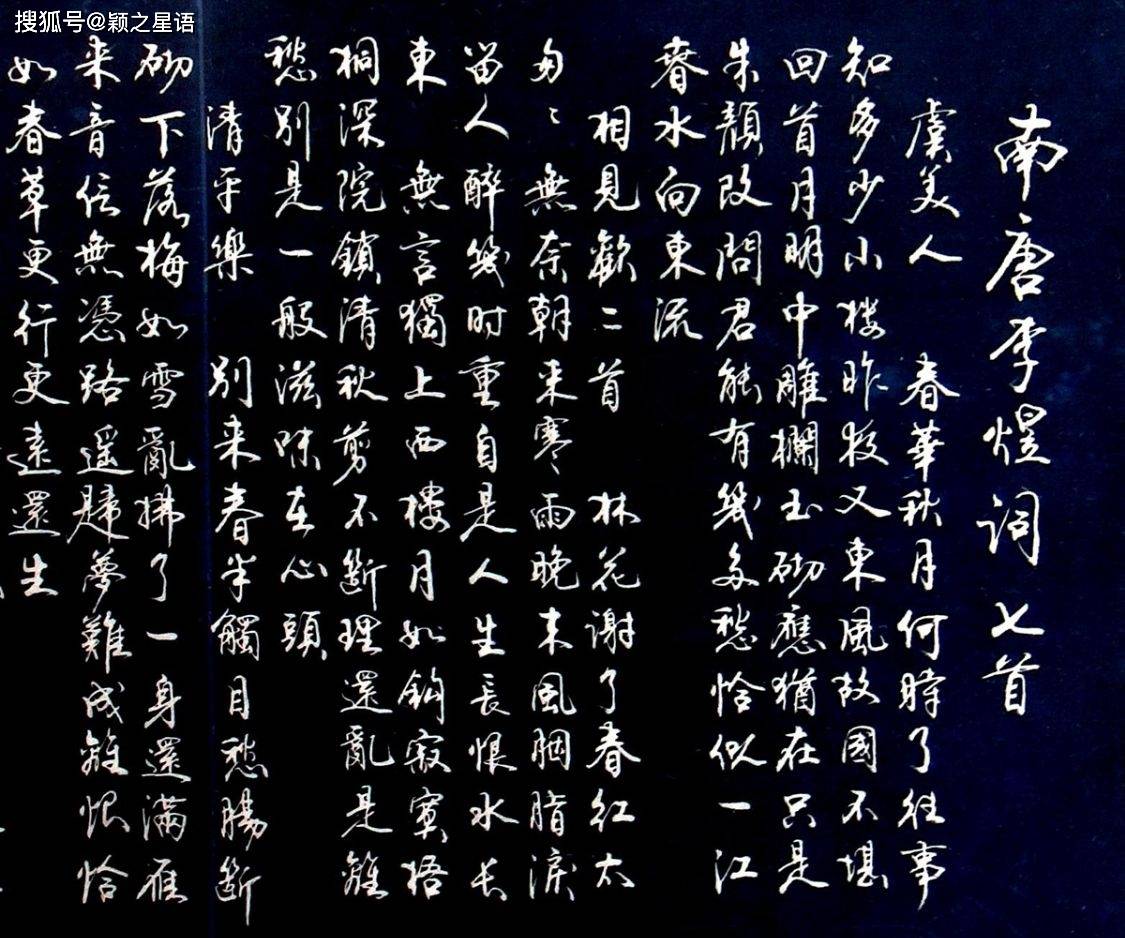 搜狐号@颖之星语
南唐李煜词七首
虞美人 春華秋月何時了往事
知多少小楼昨夜又東風故國不堪
回首月明中雕欄玉砌應猶在只是
朱顏改問君能有幾多愁恰似一江
春水向東流
相見歡二首 林花謝了春红太
匆〻無奈朝来寒雨晚来風胭脂淚
留人醉幾时重自是人生長恨水长
東 無言獨上西樓月如鈎寂寞梧
桐深院鎖清秋剪不斷理還亂是離
愁別是一般滋味在心頭
清平樂 別来春半觸目愁腸斷
砌下落梅如雪亂拂了一身還滿雁
来音信無憑路遥歸夢難成離恨恰
如春草更行更遠還生